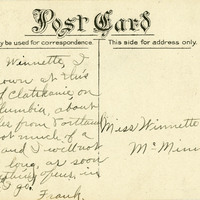 Post Card
y be used for correspondence.
This side for address only.
Winnette, I
own at this
Clatskanie on
lumbia, about
les from Portland
not much of a
and I will not
long, as soon
opens, in
I go.
Frank.
Miss Winnette
Mc Minn